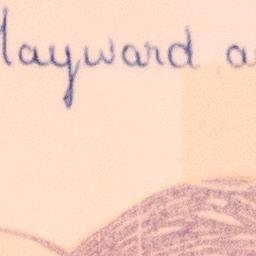 Hayward a